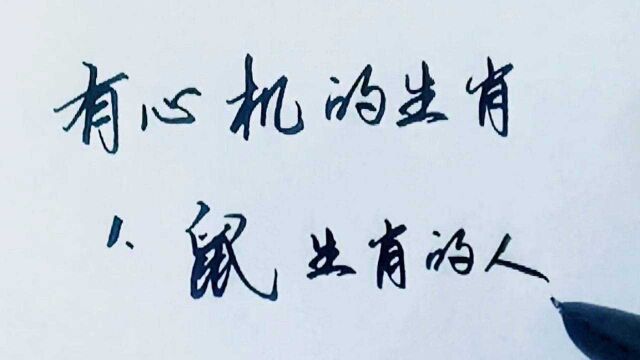 有心机的生肖
1、鼠生肖的人